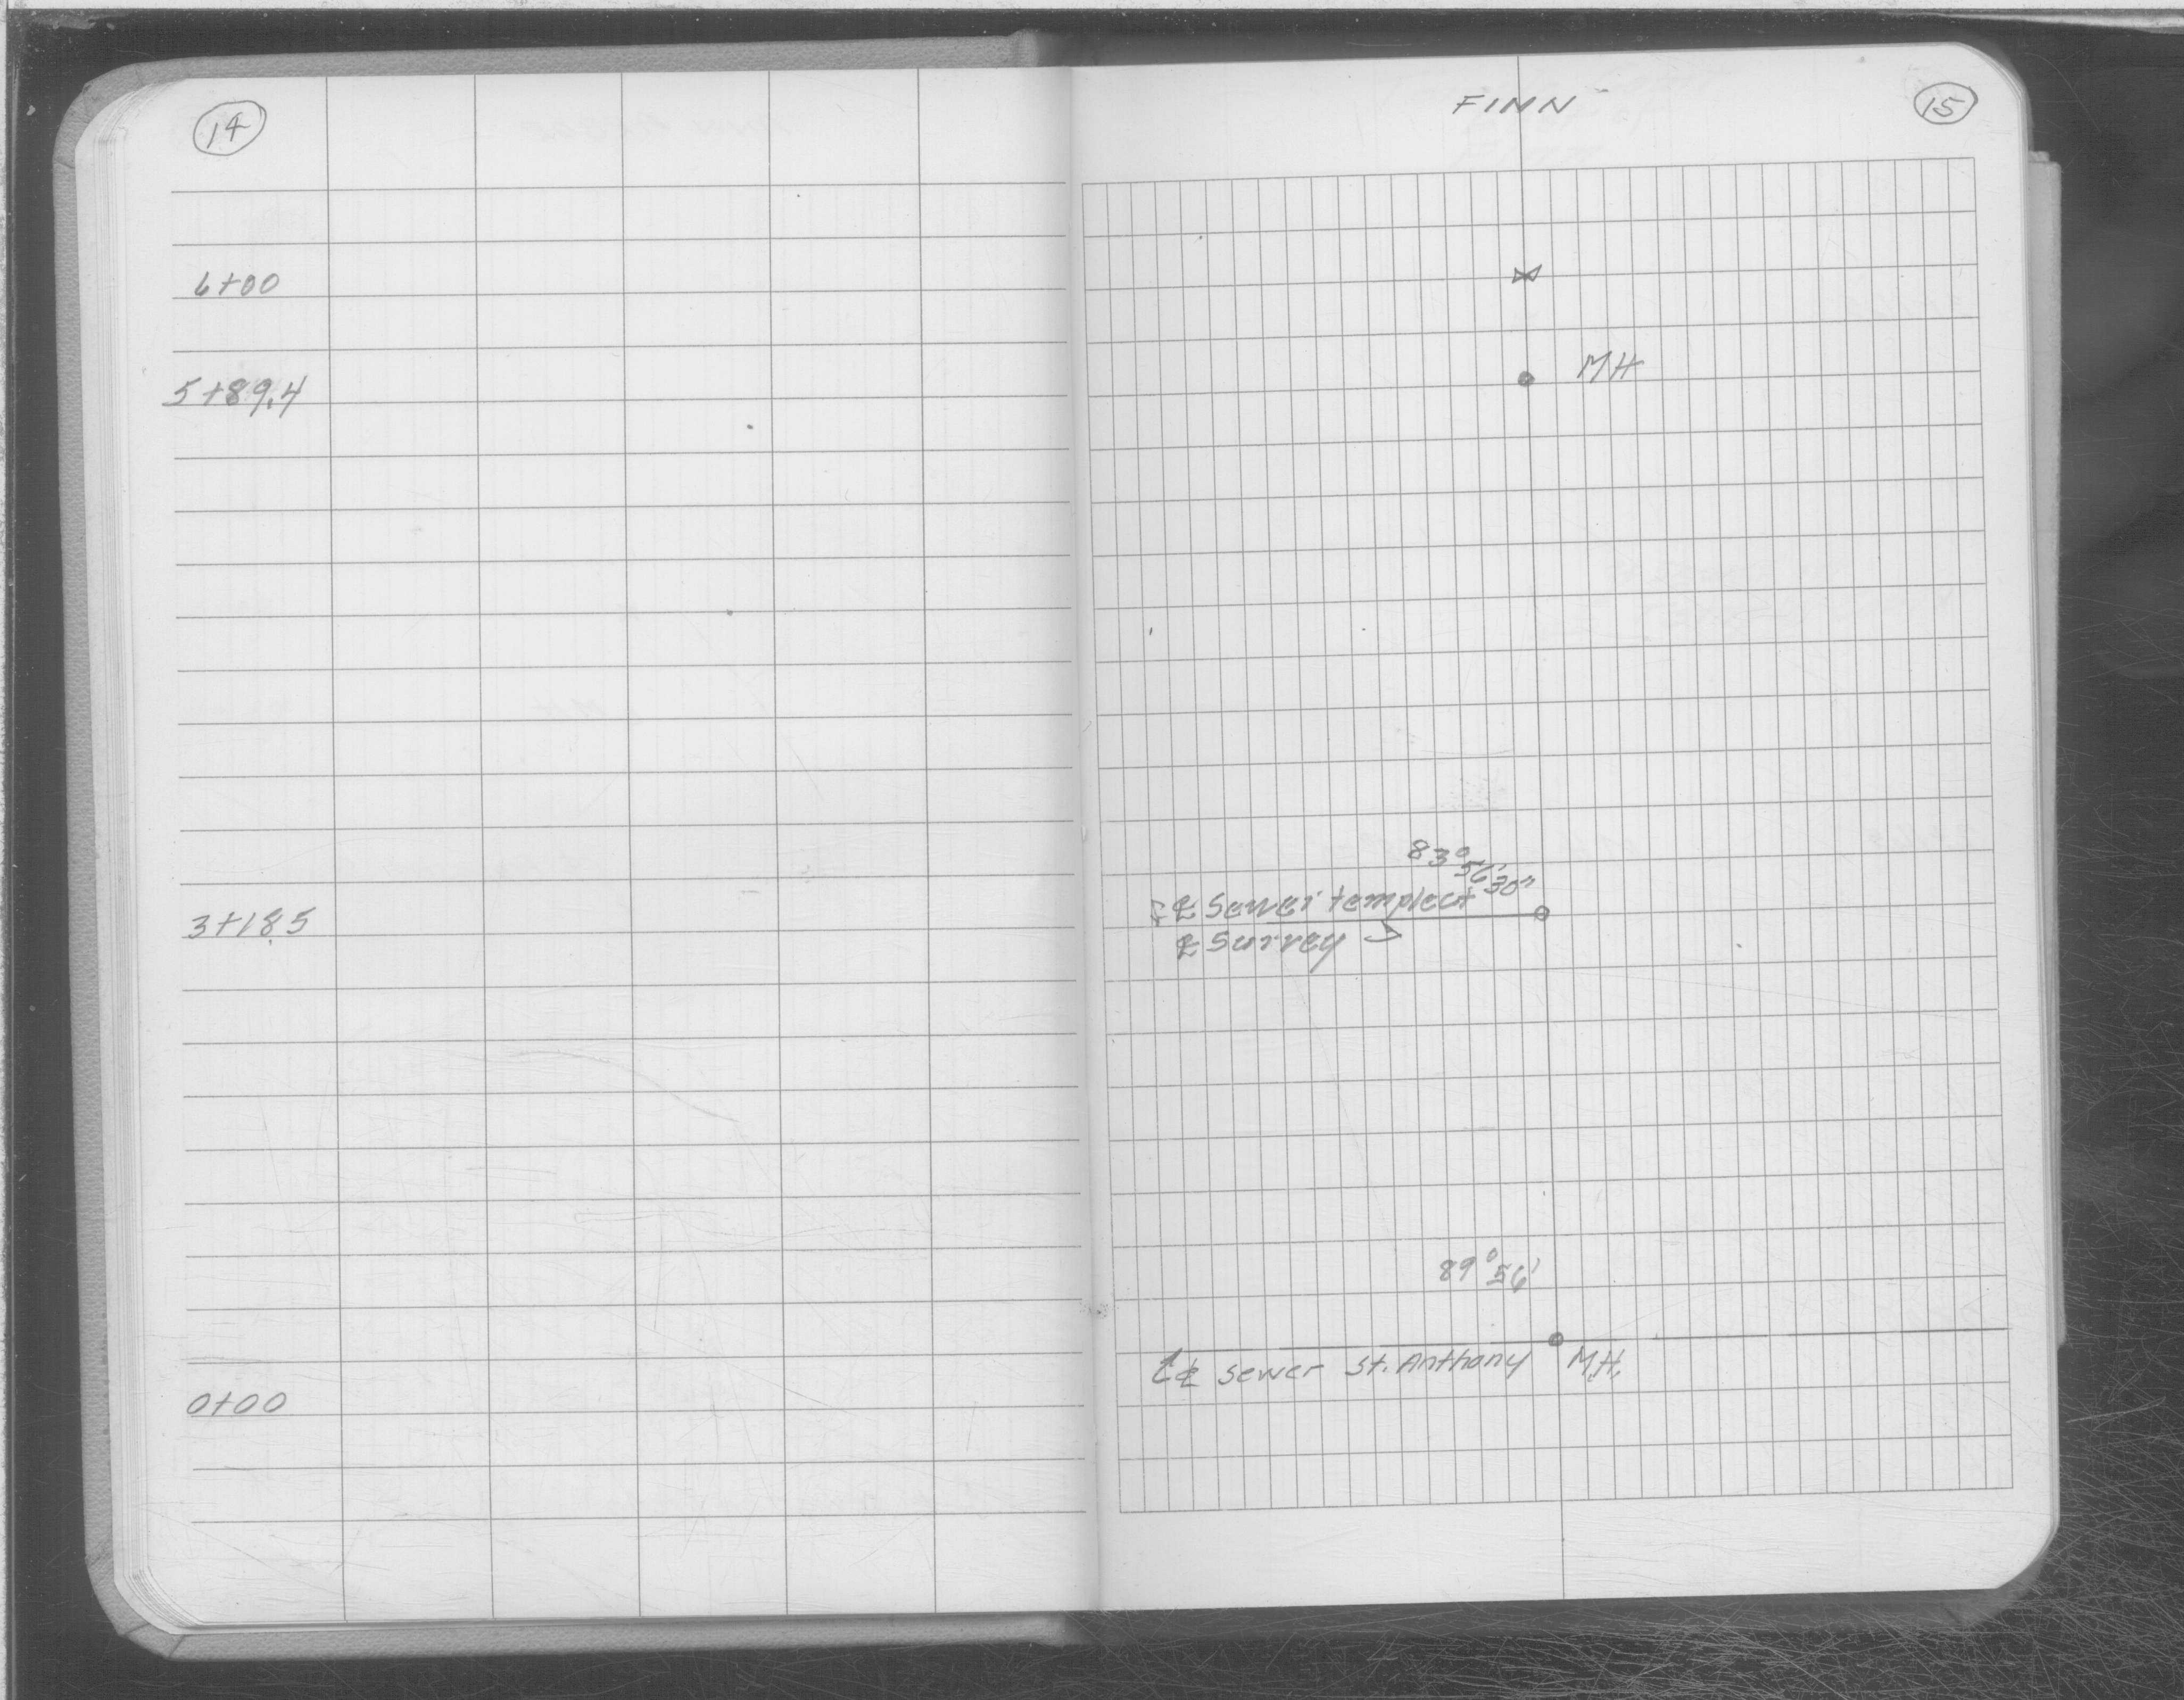 14
6+00
5+89.4
3+18.5
0+00
FINN
15
MH
83° 56' 30"
℄ Sewer temp
℄ Survey
89° 56'
℄ Sewer St. Anthony M.H.